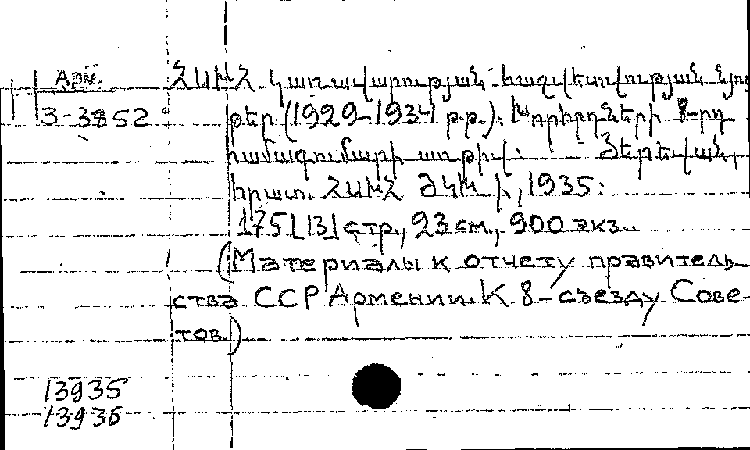 Арм. ՀՍԽՀ Կառավարության հաշվետվության նյու
3-3852 թեր (1929-1934 թ.թ.). Խորհրդների 8-րդ
համագումարի առթիվ. Յերեվան,
հրատ. ՀՍԽՀ ԶԿԽ ի, 1935:
175[13] стр., 23 см., 900 экз.
(Материалы к отчету правитель
ства ССР Армении. К 8-съезду Сове
тов)
13935
13936